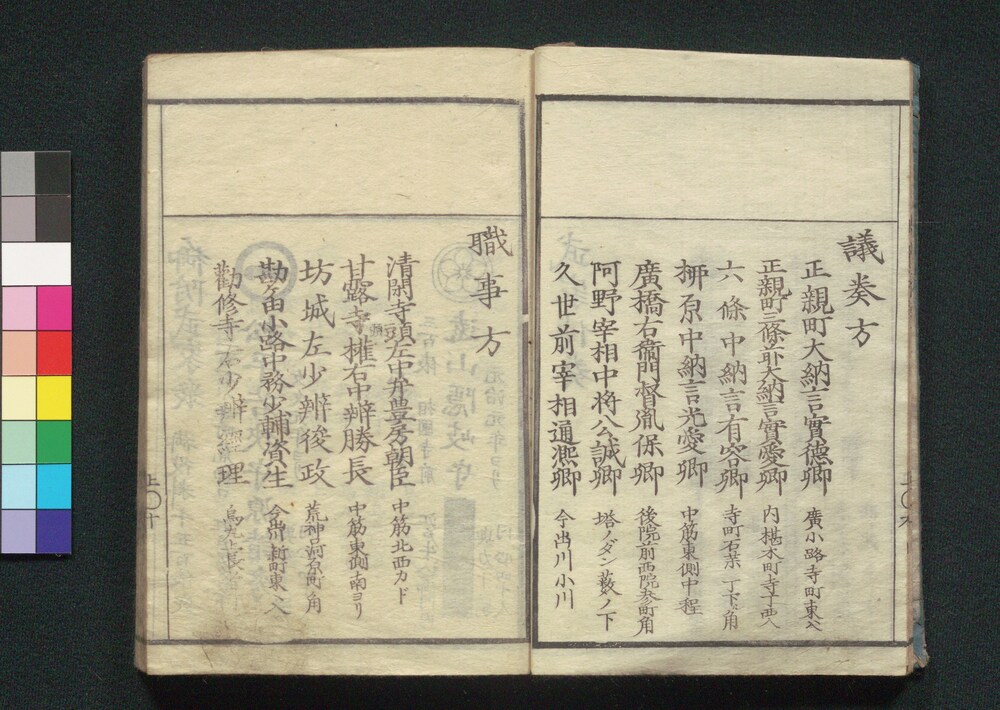 議奏方
正親町大納言實徳卿 廣小路寺町東ヘ
正親町三條前大納言實愛卿 内椹木町寺丁西入
六條中納言有容卿 寺町石薬 丁下ル角
柳原中納言光愛卿 中筋東側中程
廣橋右衞門督胤保卿 後院前西院参町角
阿野宰相中将公誠卿 塔ノダン薮ノ下
久世前宰相通凞卿 今出川小川
上〇九
職事方
清閑寺頭左中弁豊房朝臣 中筋北西カド
甘露寺権右中辨勝長 中筋東側南ヨリ
坊城左少辨俊政 荒神口河原町角
勘ケ由小路中務少輔資生 今出川新町東ヘ入
勸修寺右少辨經理 烏丸上長
上〇十